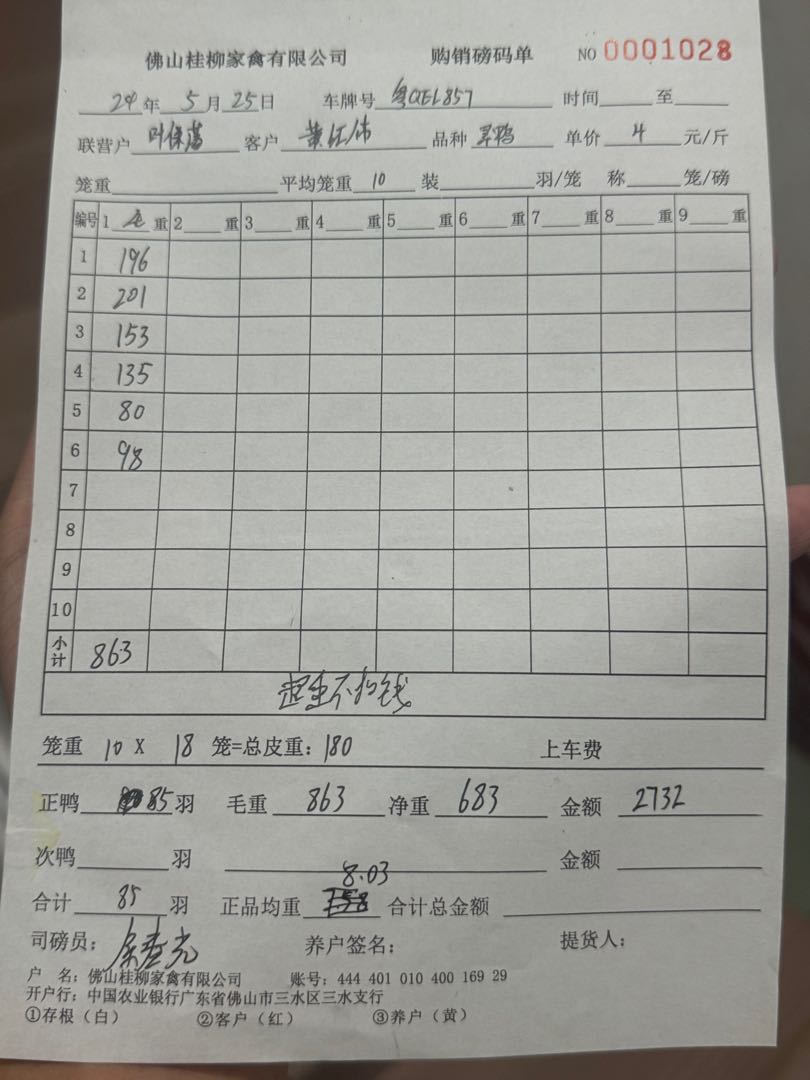 佛山桂柳家禽有限公司 购销磅码单 NO 0001028
24年 5月 25日 车牌号 粤QEL857 时间 至
联营户 叶保 客户 黄江伟 品种 单价 4 元/斤
笼重 平均笼重 10 装 羽/笼 称 笼/磅
编号 1 重 2 重 3 重 4 重 5 重 6 重 7 重 8 重 9 重
1 196
2 201
3 153
4 135
5 80
6 98
7
8
9
10
小计 863
超重不扣钱
笼重 10 X 18 笼=总皮重: 180 上车费
正鸭 85 羽 毛重 863 净重 683 金额 2732
次鸭 羽 金额
合计 85 羽 正品均重 8.03 合计总金额
司磅员: 养户签名: 提货人:
户 名: 佛山桂柳家禽有限公司 账号: 444 401 010 400 169 29
开户行: 中国农业银行广东省佛山市三水区三水支行
①存根(白) ②客户(红) ③养户(黄)